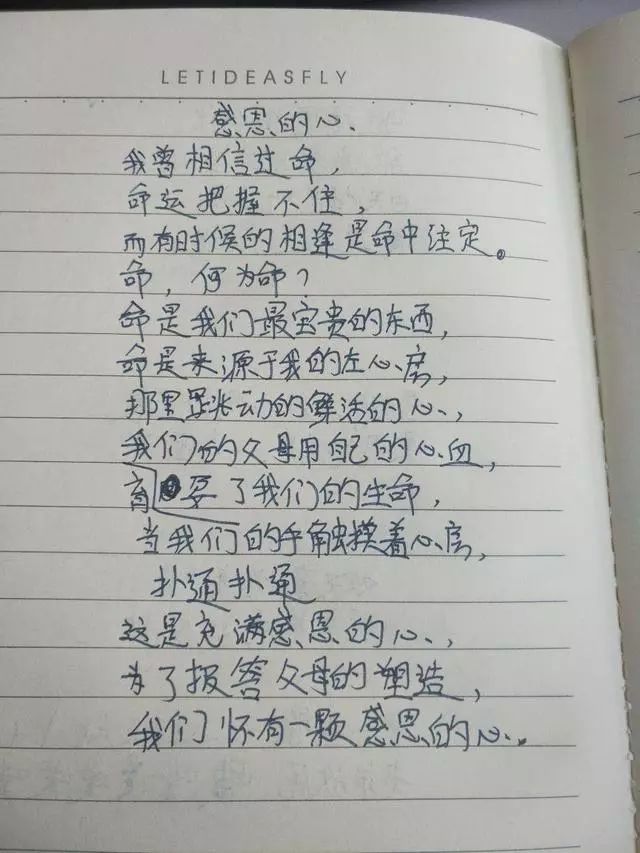 LETIDEASFLY
感恩的心、
我曾相信过命，
命运把握不住，
而有时候的相逢是命中注定。
命，何为命？
命是我们最宝贵的东西，
命是来源于我的左心房，
那里是跳动的鲜活的心，
我们的父母用自己的心血，
育了我们的生命，
当我们的手触摸着心房，
扑通扑通
这是充满感恩的心，
为了报答父母的塑造，
我们怀有一颗感恩的心。